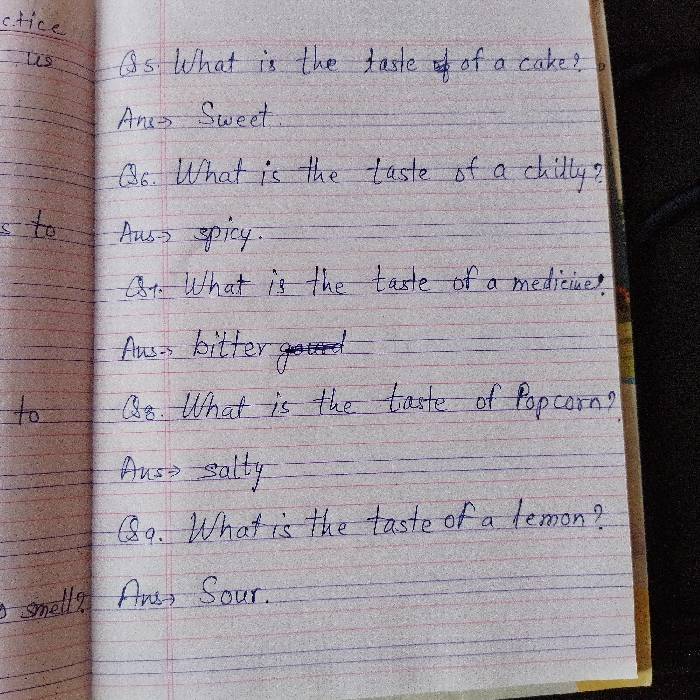 ctice
us
s to
to
smell?
Q5. What is the taste of a cake?
Ans→ Sweet.
Q6. What is the taste of a chilly?
Ans→ spicy.
Q7. What is the taste of a medicine?
Ans→ bitter gourd
Q8. What is the taste of Popcorn?
Ans→ salty
Q9. What is the taste of a lemon?
Ans→ Sour.